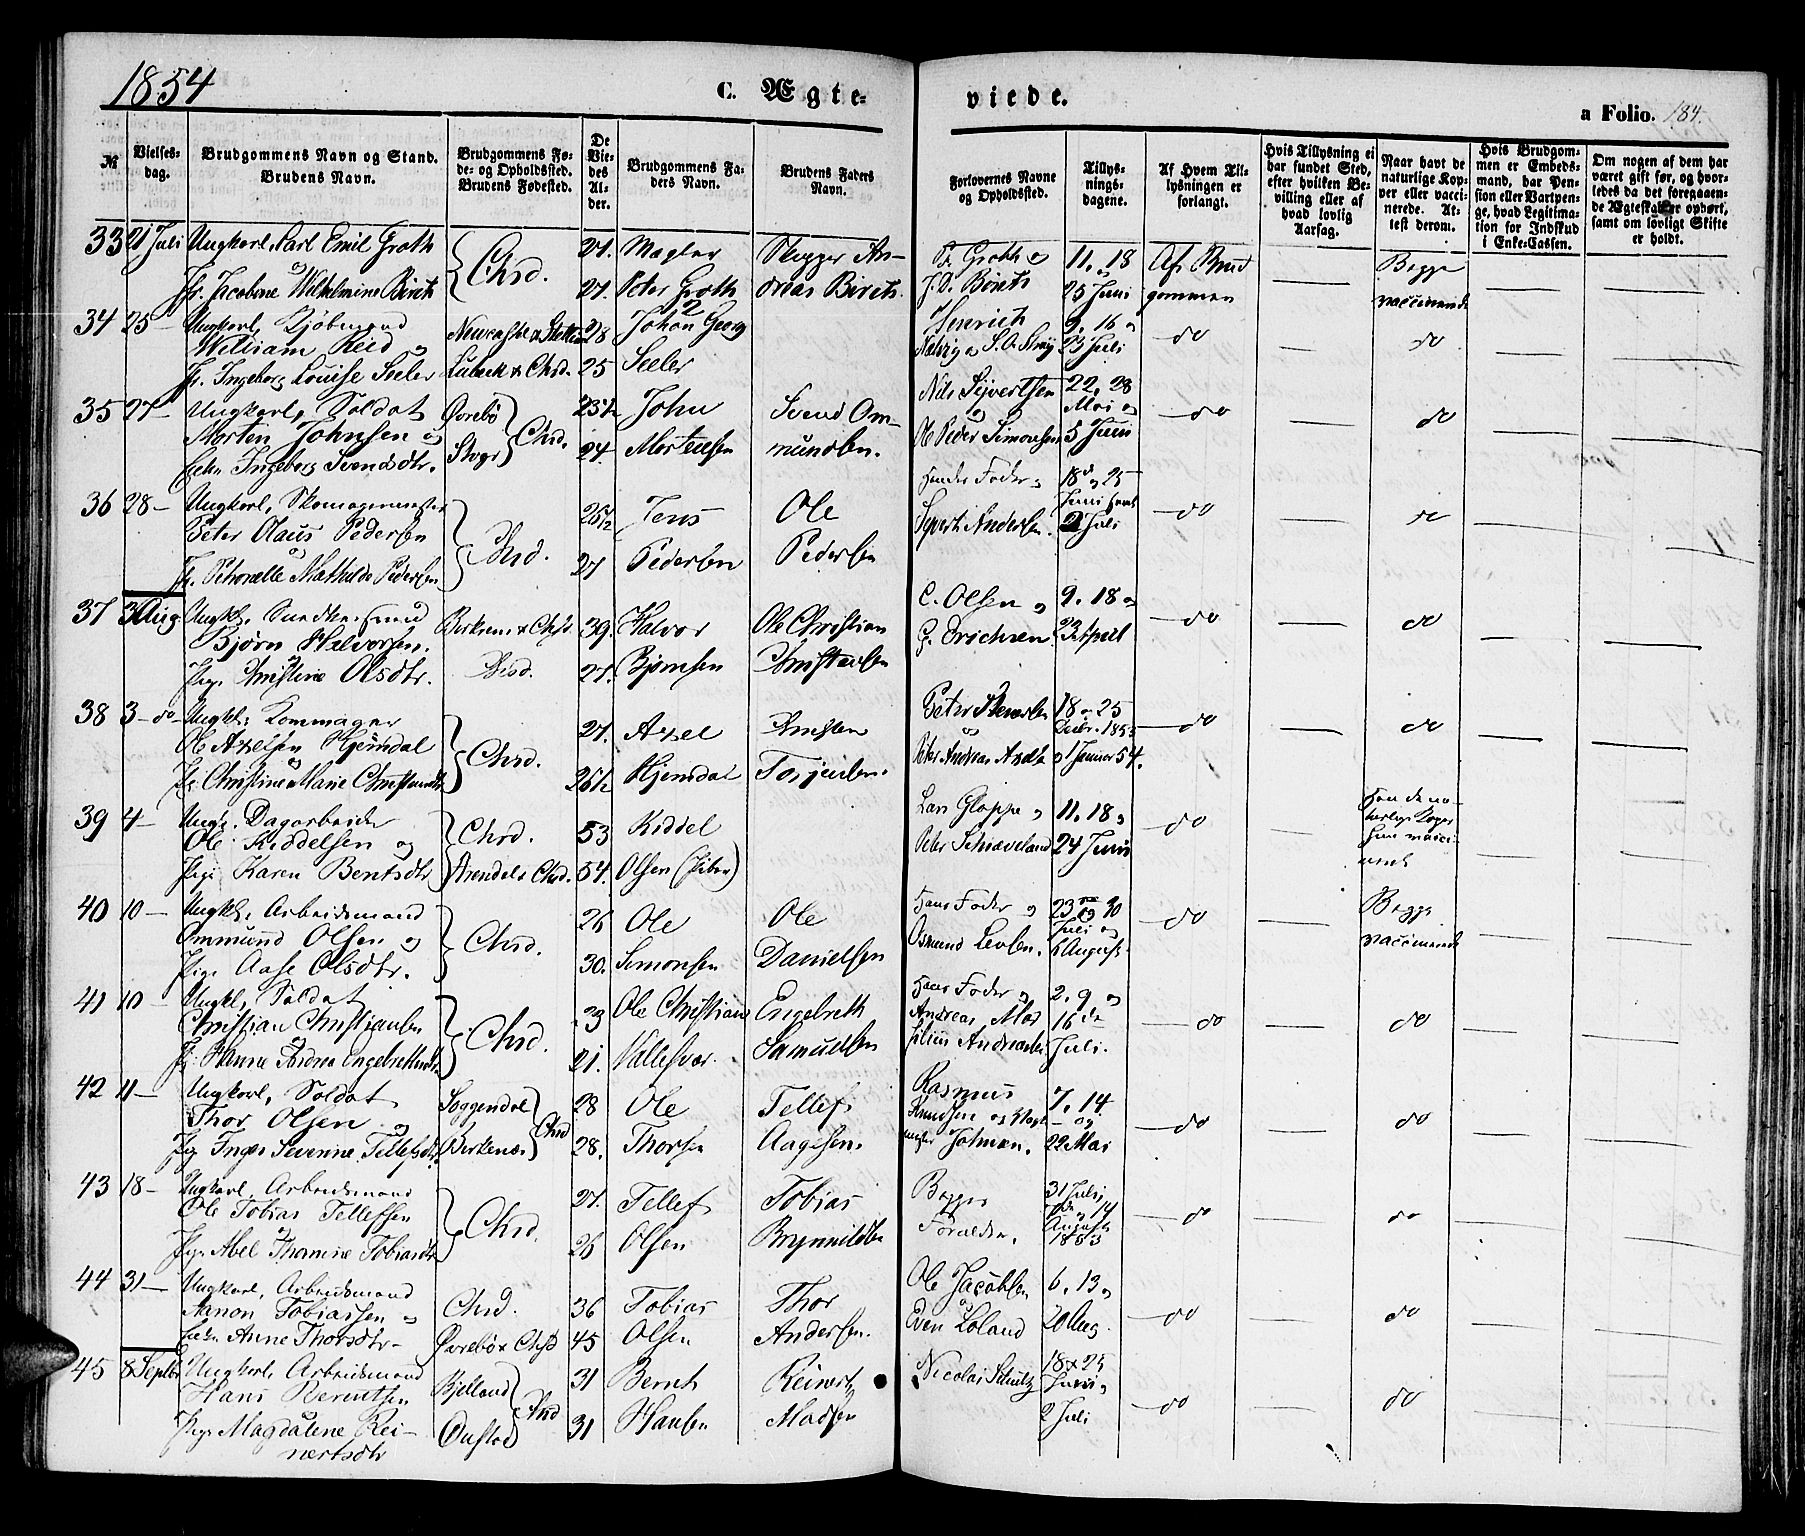 1854
C. Ægte-
viede.
a Folio. 184.
№
Vielses-
dag.
Brudgommens Navn og Stand.
Brudens Navn.
Brudgommens Fø-
de- og Opholdssted.
Brudens Fødested.
De
Vie-
des
Al-
der.
Brudgommens Fa-
ders Navn.
Brudens Faders
Navn.
Forlovernes Navne
og Opholdssted.
Tillys-
nings-
dagene.
Af Hvem Til-
lysningen er
forlangt.
Hvis Tillysning ei
har fundet Sted,
efter hvilken Be-
villing eller af
hvad lovlig
Aarsag.
Naar havt de
naturlige Kop-
per eller vacci-
nerede. At-
test derom.
Hvis Brudgom-
men er Embeds-
mand, har Pen-
sion eller Vartpen-
ge, hvad Legitima-
tion for Indskud
i Enke-Cassen.
Om nogen af dem har
været gift før, og hvor-
ledes da det foregaaen-
de Ægteskab er ophørt,
samt om lovligt Skifte
er holdt.
33 21 Juli Ungkarl, Carl Emil Groth
og
Jfr. Jacobine Wilhelmine Birits
Chsd.
27. Mægler
27. Peter Groth
Andreas Birits.
P. Groth og
J. D. Birits
11, 18
25 Juni
Af Brud
gommen
Begge
vaccinerede
34 25 - Ungkarl, Kjøbmand
William Reid og
Jfr. Ingeborg Louise Seeler
Lübeck & Chsd.
28 Johan Georg
25 Seeler
Henrich
9, 16 og
23 Juli
do
do
35 27 - Ungkarl, Soldat
Morten Johnsen og
Ingeborg Svendsdtr.
Øvrebø
Chsd.
23½ John
24. Mortensen
Svend Om-
mundsen.
Nils Sejvertsen
og
Ole Peder Simonsen
22, 28
Mai og
5 Juni
do
do
36 28 - Ungkarl, Skomagermester
Peter Olaus Pedersen
og
Jfr. Petronelle Mathilde Pedersen
Chsd.
25½ Jens
27 Pedersen
Ole
Pedersen
Hendes Fader og
Syvert Andersen.
18de og 25
Juni samt
2 Juli
do
do
37 3 Aug Ungkl.
Bjørn Halvorsen.
og
Pige Christine Olsdtr.
Birkrem & Chsd.
Chsd.
39. Halvor
27. Bjørnsen
Ole Christian
Christensen
C. Olsen og
G. Erichsen
9, 18 og
23 April
do
do
38 3 - do - Ungkl.
Ole Axelsen Hjemdal
og
Jfr. Christine Marie
Chsd.
27. Axel
25½ Hjemdal
Peter
og
Peter Andreas
18 og 25
Decbr. 1853
og 1 Januar 54.
do
do
39 4 - Ungk. Dagarbeider
Ole Kiddelsen og
Pige Karen Bentsdtr
Chsd.
Arendal & Chsd.
53 Kiddel
54. Olsen
Lars Gloppe og
Peter Schiæveland
11, 18 og
24 Juni
do
Han de na-
turlige Kopper
Hun vacci-
neret
40 10 - Ungkl. Arbeidsmand
Ommund Olsen og
Pige Aase Olsdtr.
Chsd.
26 Ole
30. Simonsen
Ole
Danielsen
Hans Fader og
Osmund Levsen.
23de og 30
Juli og
6 August
do
Begge
vaccinerede
41 10 - Ungkl, Soldat
Christian Christiansen
og
Chsd.
23 Ole Christian
21. Vallesvær
Engelbreth
Samuelsen
Hans Fader og
Andreas Mos
2, 9 og
16de
Juli.
do
do
42 11 - Ungkarl, Soldat
Thor Olsen og
Pige Inger Severine Tellefsdtr.
Soggendal
Birkenæs
Chsd
28 Ole
28. Thorsen
Tellef
Aagesen.
Rasmus
Knudsen og
7, 14
- og
22 Mai
do
do
43 18 - Ungkarl, Arbeidsmand
Ole Tobias Tellefsen
og
Pige Abel Thomine Tobiasdtr
Chsd.
27. Tellef
26 Olsen
Tobias
Brynnildsen
Begges
Forældre.
31 Juli,
7de og 14
August
1853
do
do
44 31 - Ungkarl, Arbeidsmand
Aanon Tobiassen og
Anne Thorsdtr -
Chsd.
Øvrebø & Chsd
36 Tobias
45 Olsen
Thor
Andersen.
Ole Jacobsen
og
Even Loland
6, 13 og
20 Aug.
do
do
45 8 Septbr Ungkarl, Arbeidsmand
Hans Berentsen
og
Pige Magdalene Rei-
nertsdtr
Bjelland
Chsd
31 Bernt
31 Hansen
Reinert
Madsen
Nicolai Schultz
18 & 25
Juni og
2 Juli
do
do